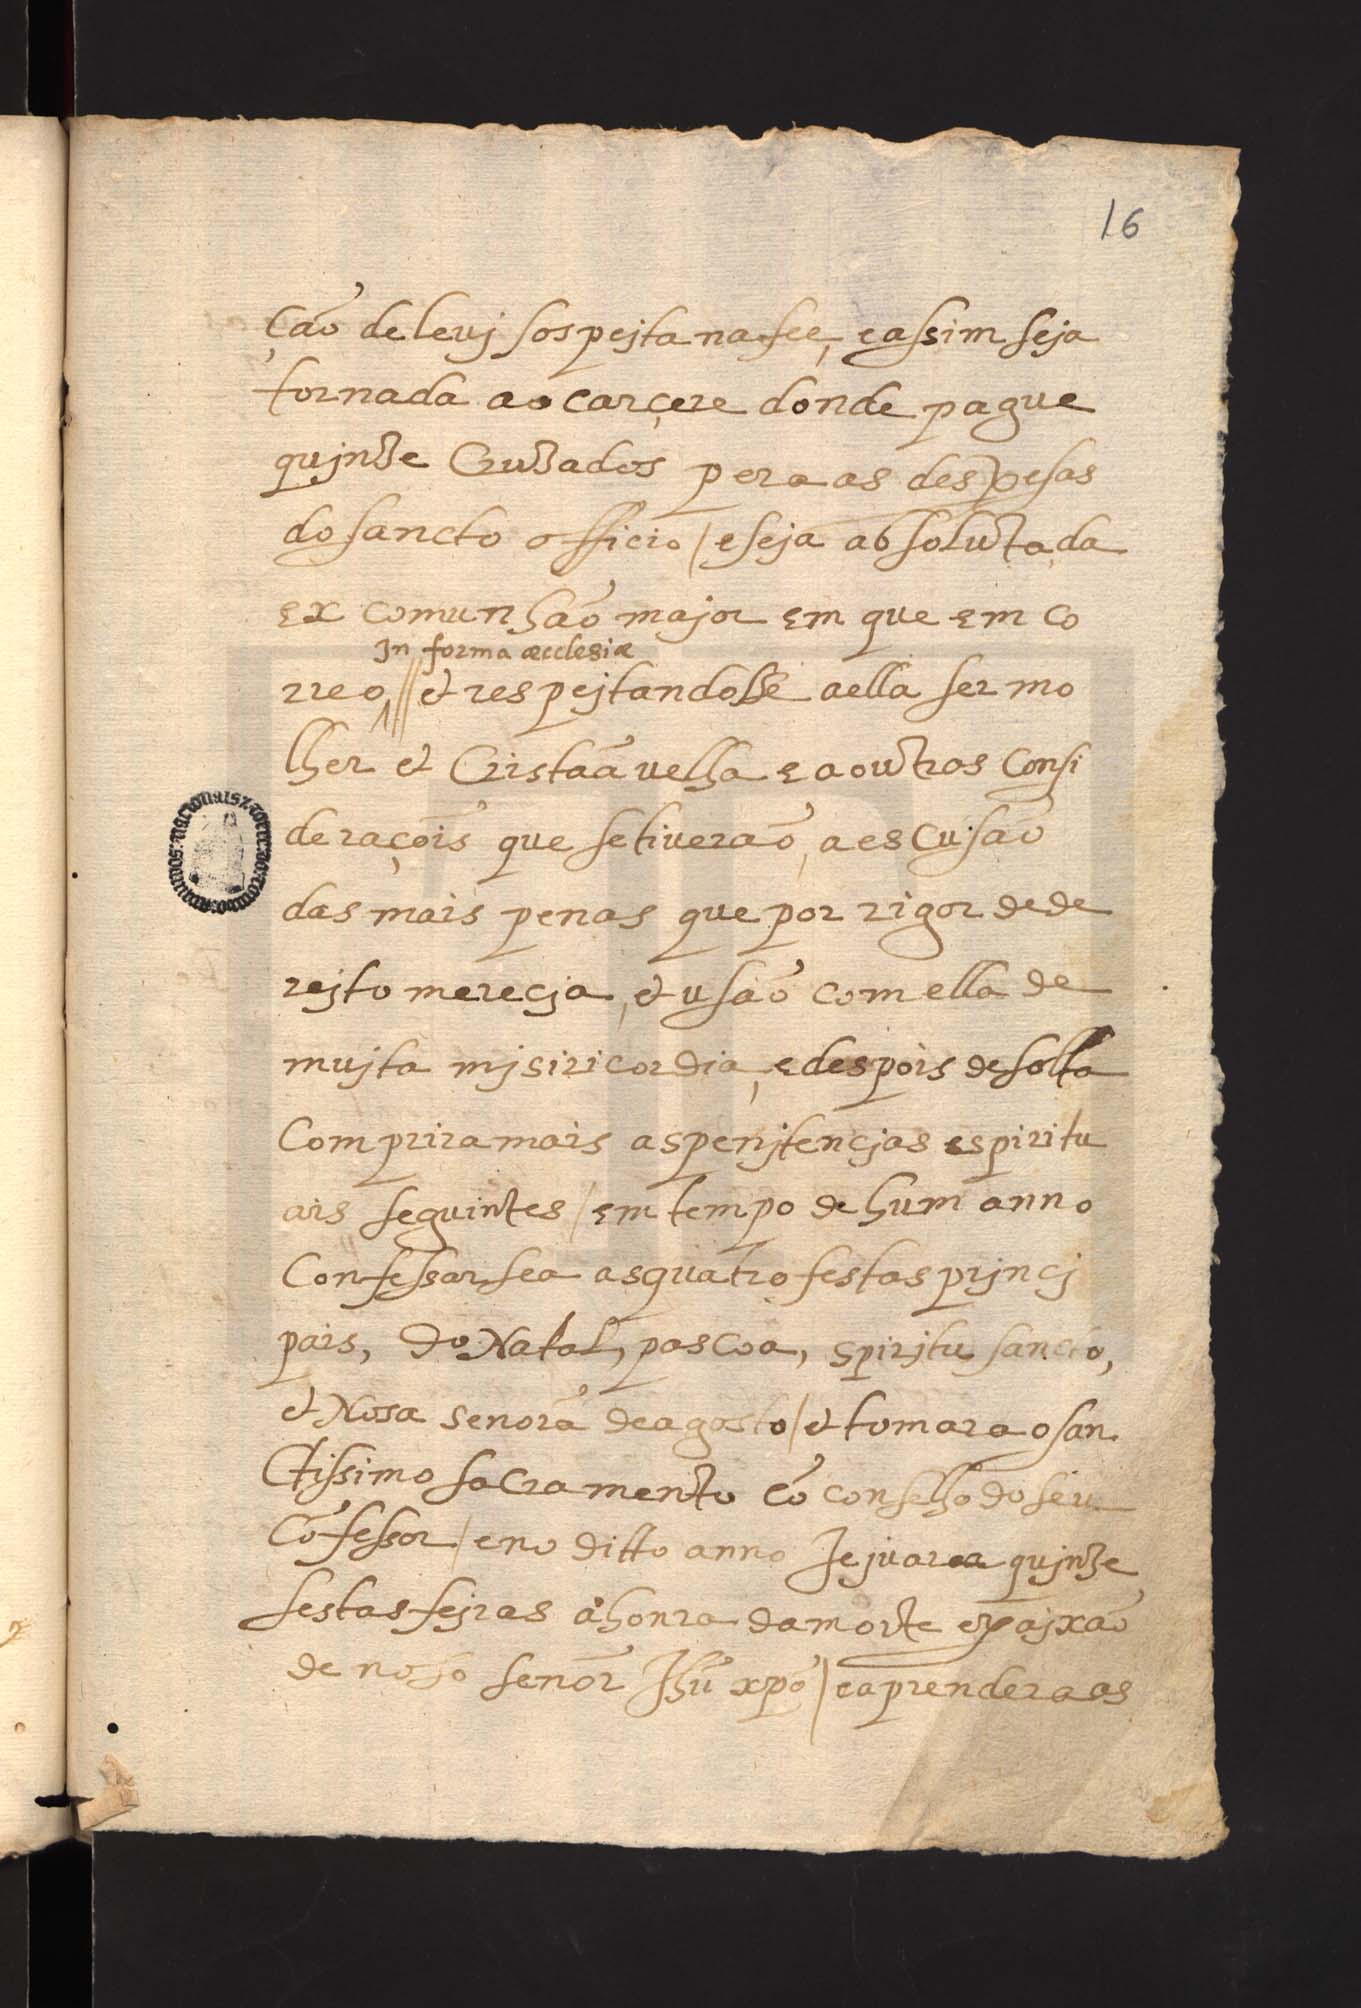 16
ção de levj sospejta na fee, e assim seja
tornada ao carçere donde pague
qujnze Cruzados pera as despesas
do sancto officio / e seja absoluta, da
excomunhão major em que em co
In forma æcclesiæ
rreo, // et respejtandosse a ella ser mo
lher et Cristaã velha e a outras Consi
deraçõis que se tiverão, a escusão
das mais penas que por rigor de de
rejto mereçja, et usão com ella de
mujta mjsiricordia, e despois de solta
Comprira mais as penjtençjas espiritu
ais seguintes / em tempo de hum anno
Confessarsea as quatro festas prjncj
pais, do Natal, pascoa, spirjtu sancto,
et Nosa senorã de agosto / et tomara o san
Ctissimo sacramento cõ conselho do seu
Cõfessor / e no ditto anno Jejuara qujnze
sestas fejras á honra da morte e pajxão
de noso senõr Jhũ xpõ / e aprendera as